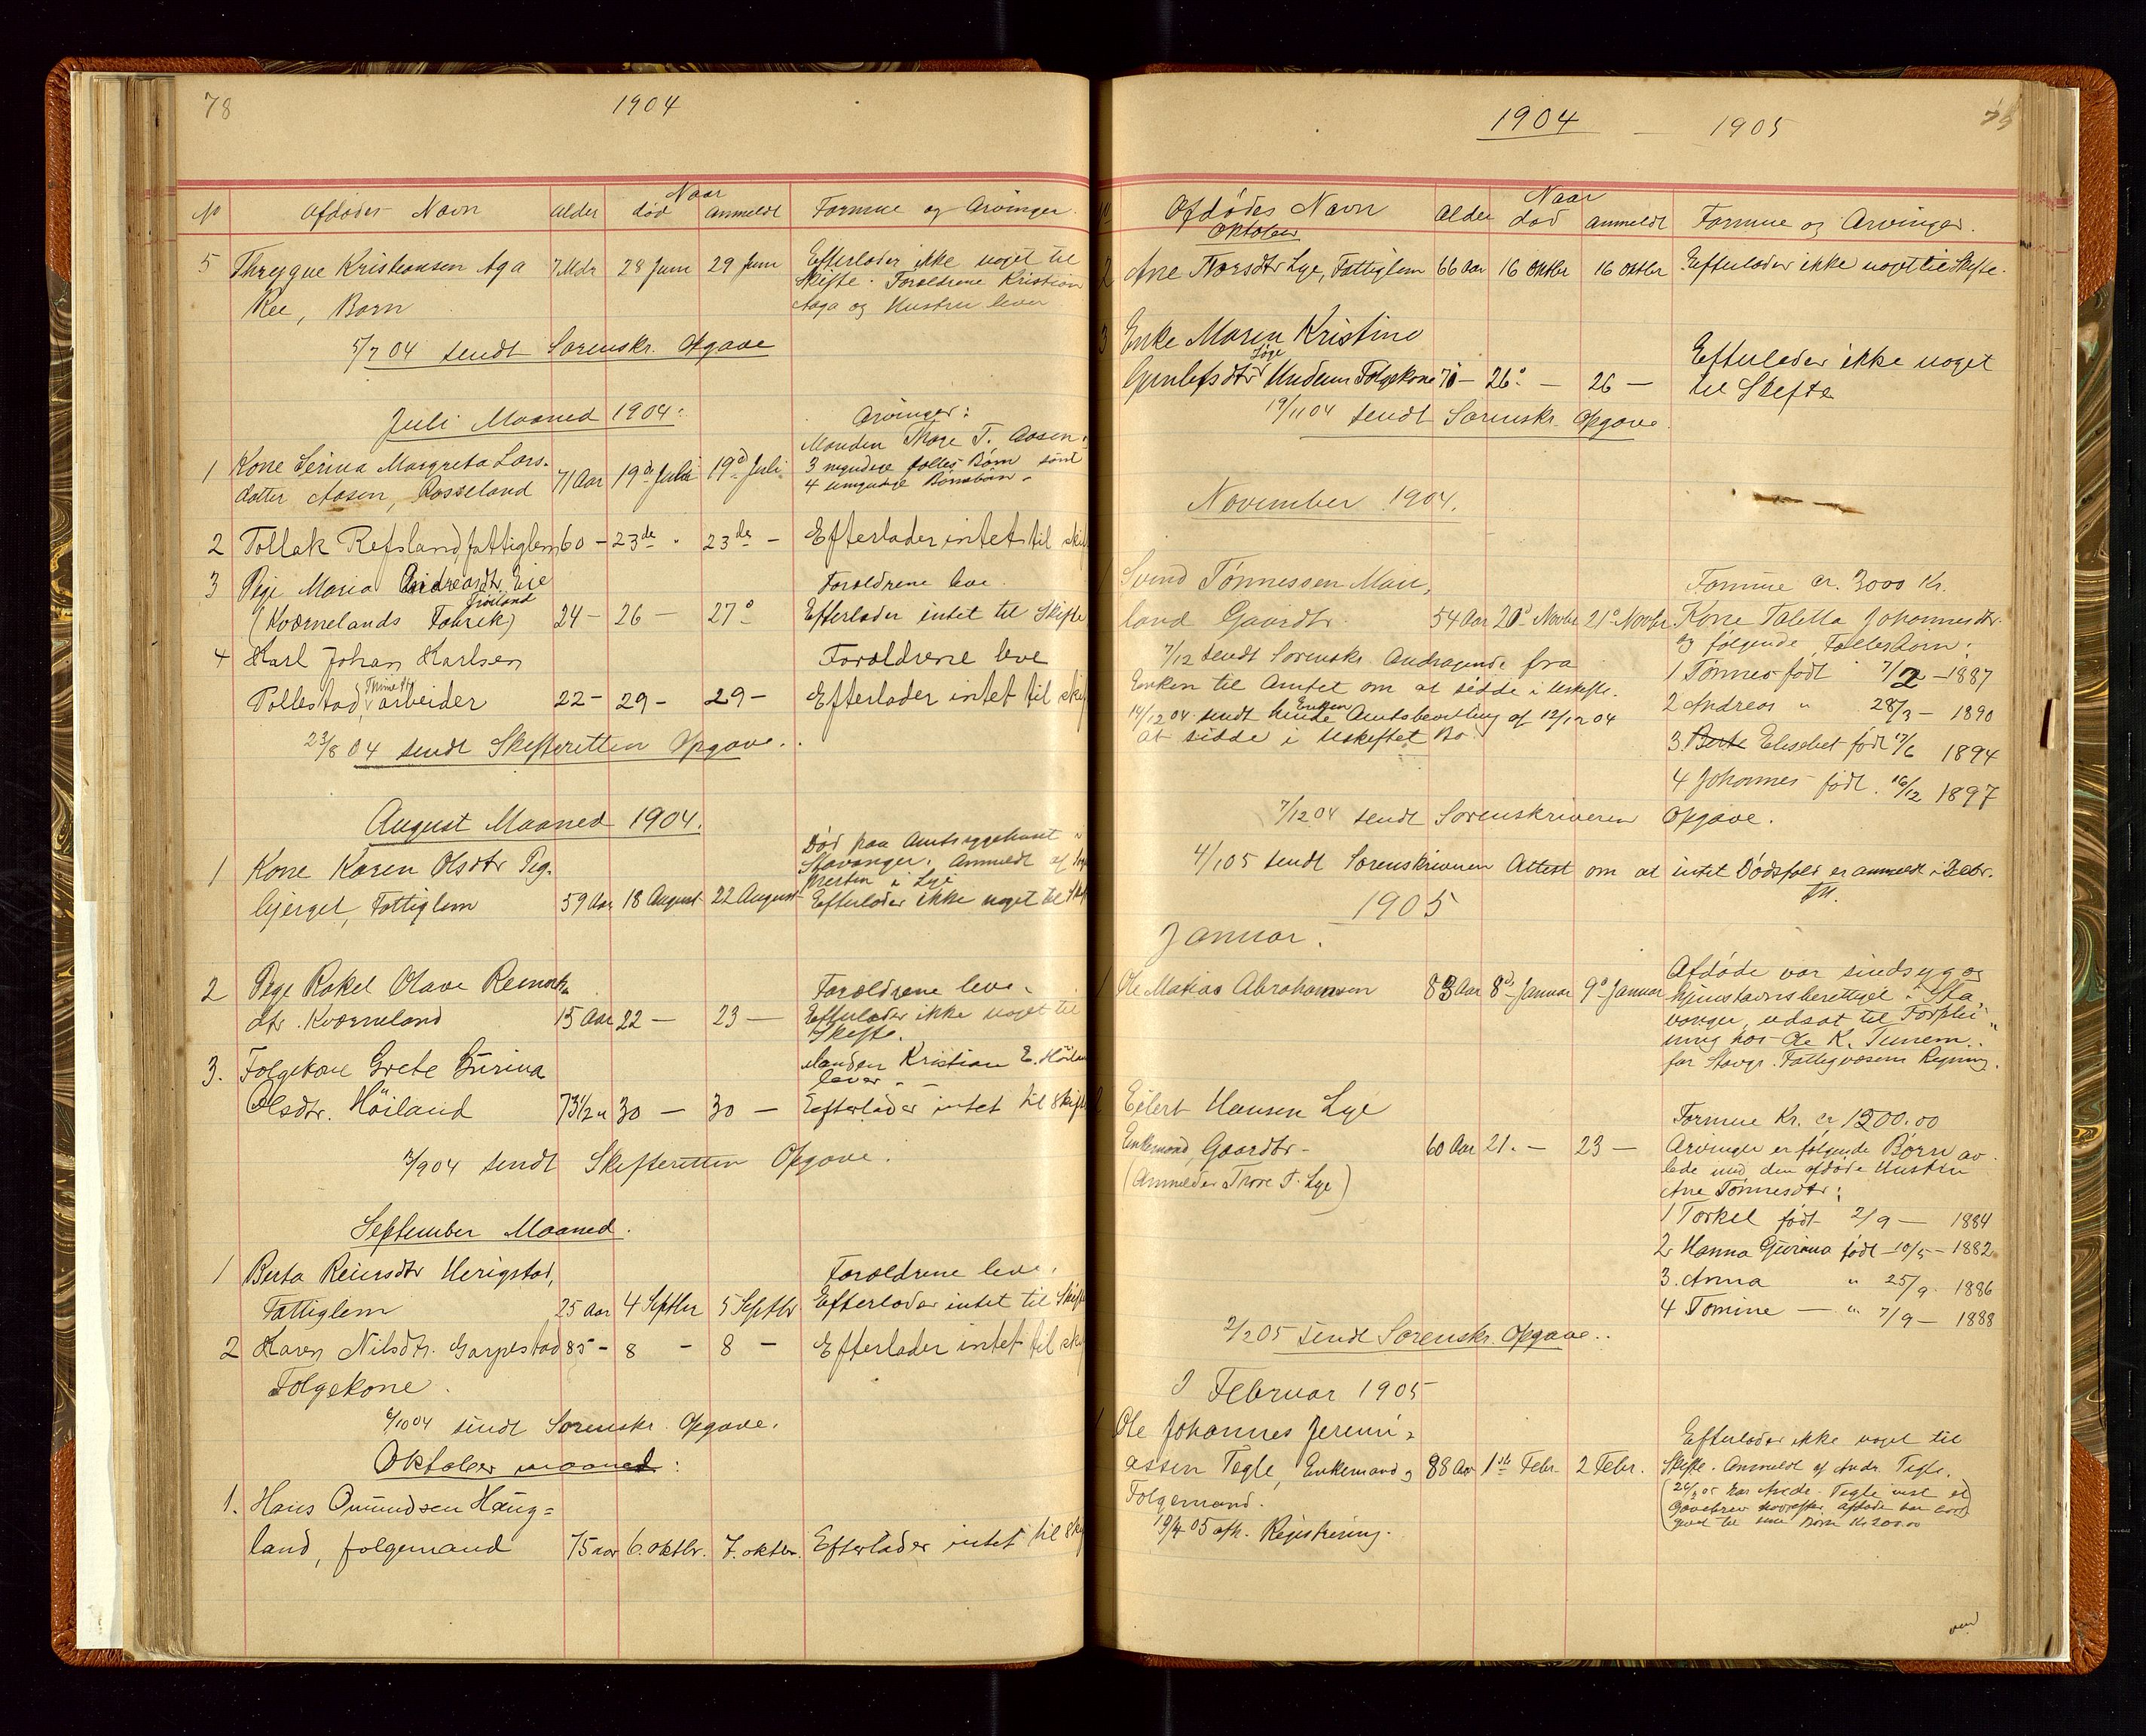 78
1904
No Afdødes Navn Alder Naar død anmeldt Formue og Arvinger
5 Kristiansen Aga 7 Mdr 28 Juni 29 Juni Efterlader ikke noget til
Skifte. Forældrene Kristian
Ree, Barn
Aga og Hustru lever
5/7 04 sendt Sorenskr. Opgave
Juli Maaned 1904.
Arvinger:
Manden Thore T. Aasen
1 Kone Serina Margreta Lars-
3 myndige fælles Børn samt
datter Aasen, Rosseland 71 Aar 19de Juli 19d Juli
4 umyndige Børnebørn.
2 Tollak Refsland fattiglem 60 - 23de " 23de - Efterlader intet til
3 Pige Maria Andreasdtr. Eie
Forældrene leve.
Frøiland
(Kværnelands Fabrik) 24 - 26 - 27d Efterlader intet til Skifte
4 Karl Johan Karlsen Forældrene leve
Pollestad, Time st. arbeider 22 - 29 - 29 - Efterlader intet til
23/8 04 sendt Skifteretten Opgave.
August Maaned 1904.
Død paa Amtssygehuset i
Stavanger. Anmeldt af
1 Kone Karen Olsdtr Pig-
i Lye
bjerget, Fattiglem 59 Aar 18 August 22 August Efterlader ikke noget til
2 Pige Rakel Olave Reinerts
Forældrene leve.
dtr. Kværneland 15 Aar 22 - 23 - Efterlader ikke noget til
Skifte.
3. Folgekone Grete Gurina
Manden Kristian E.
lever -
Olsdtr. Höiland 73 1/2 " 30 - 30 - Efterlader intet til
3/9 04 sendt Skifteretten Opgave.
September Maaned.
1 Berta Reiersdtr Herigstad,
Forældrene leve.
Fattiglem 25 Aar 4 Septbr 5 Septbr Efterlader intet til
2 Karen Nilsdtr. Garpestad 85 - 8 - 8 - Efterlader intet til
Folgekone.
6/10 04 sendt Sorenskr. Opgave.
Oktober maaned:
1. Hans Omundsen Haug=
land, folgemand 75 aar 6. oktbr. 7. oktbr. Efterlader intet til
1904 - 1905
Afdødes Navn Alder Naar død Anmeldt Formue og Arvinger.
Oktober
2 Ane Lye, Fattiglem 66 Aar 16 Oktbr 16 Oktbr Efterlader ikke noget til Skifte.
3 Enke Maren Kristine
Efterlader ikke noget
Lye
Undem Folgekone 70 - 26d - 26 - til Skifte
19/11 04 sendt Sorenskr. Opgave.
November 1904.
1 Svend Tønnessen Mau
Formue ca. 3000 Kr.
land Gaardbr. 54 Aar 20d Novbr 21d Novbr Kone Taletta Johannesdtr.
og følgende Fællesbørn:
7/12 sendt Sorenskr. Andragende fra
1 Tønnes født 7/2 - 1887
Enken til Amtet om at sidde i Uskifte.
2 Andreas " 28/3 - 1890
14/12 04 sendt Enken Amtsbevilling af 12/12 04
at sidde i Uskiftet Bo.
3 Elisabet født 17/6 1894
4 Johannes født 16/12 1897
7/12 04 sendt Sorenskriveren Opgave.
4/1 05 sendt Sorenskriveren Attest om at intet Dødsfald er anmeldt i Debr.
1905
Januar.
1 Ole Matias Abrahamsen 83 Aar 8d Januar 9d Januar
Afdøde var sindsyg og
hjemstavnsberettiget i Sta-
vanger, udsat til Forplei-
ning hos Ole K. Tunem
for Stavgr. Fattigvæsens Regning.
2 Eilert Hansen Lye
Formue Kr. ca 1200.00
Enkemand, Gaardbr. 60 Aar 21. - 23 - Arvinger er følgende Børn av
lede med den afdøde Hustru
(Anmelder Thore T. Lye)
Ane Tønnesdtr:
1 Torkel født 2/9 - 1884
2 Hanna født 10/5 - 1882
3. Anna " 25/9 - 1886
4 Tomine - " 7/9 - 1888
2/2 05 sendt Sorenskr. Opgave.
I Februar 1905
1 Ole Johannes Jeremi-
Efterlader ikke noget til
assen Tegle, Enkemand og 88 Aar 1ste Febr. 2 Febr. Skifte. Anmeldt af Andr. Tegle.
Folgemand.
Tegle vist et
Gavebrev hvorefter afdøde har
til sine Børn Kr 200.00
19/4 05 afh. Registrering.